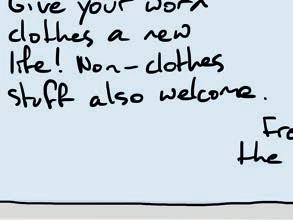 Give your worn
clothes a new
life! Non-clothes
stuff also welcome.
Fro
the